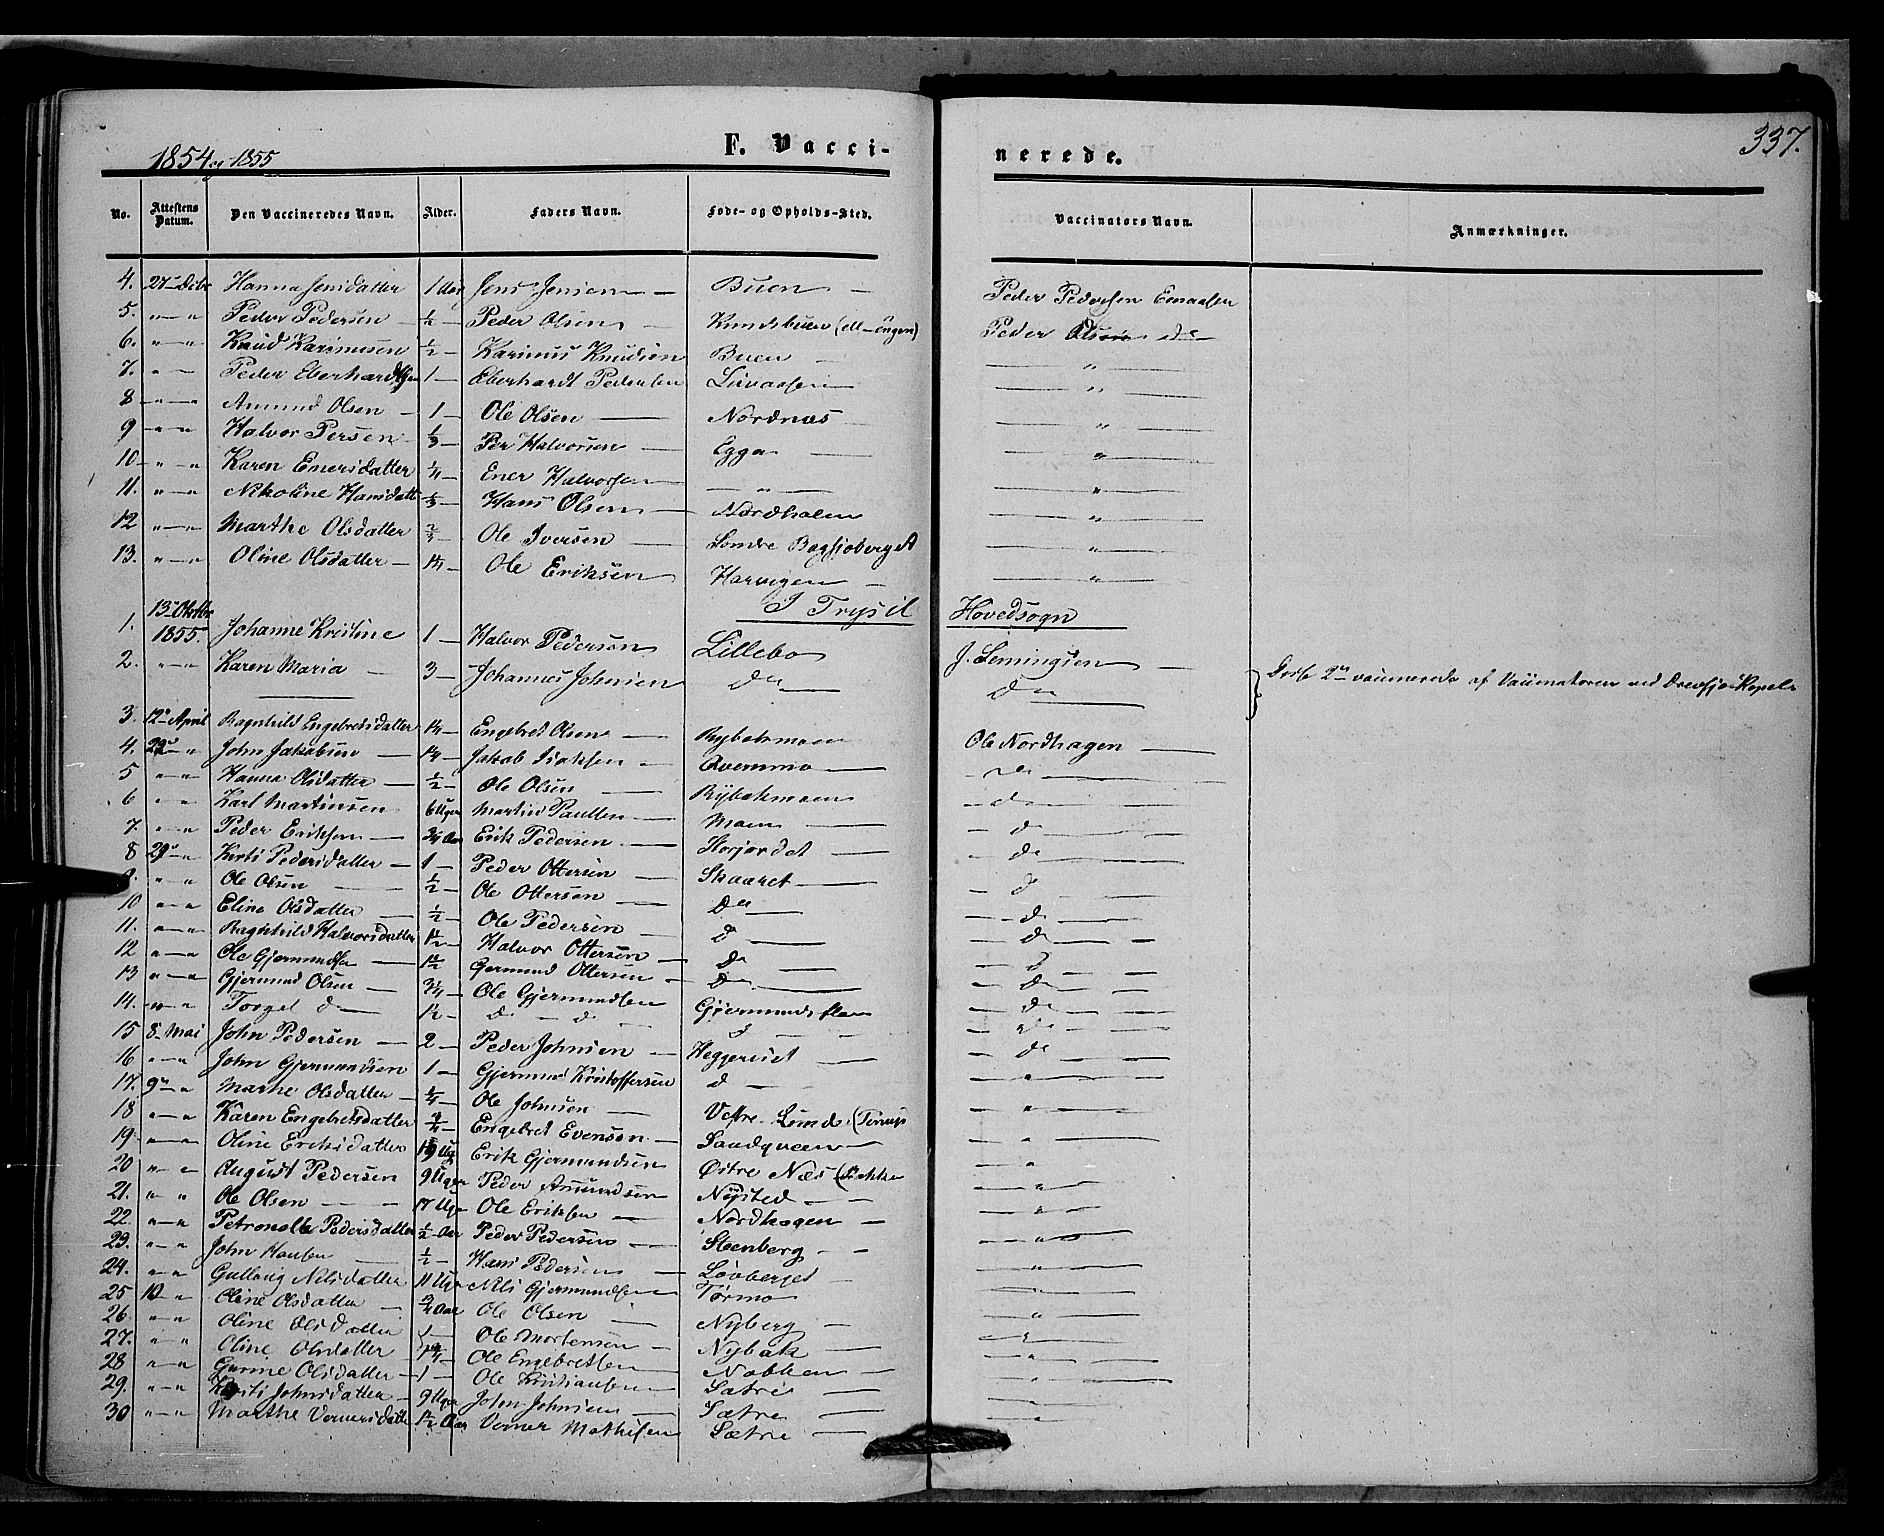 1854 og 1855 F. Vacci- nerede. 337.
No. Attestens Datum. Den Vaccineredes Navn. Alder. Faders Navn. Føde- og Opholds-Sted. Vaccinators Navn. Anmærkninger.
4. 27 Debr Hanna Jensdatter 1 Aar Jens Jensen — Buen — Peder Pedersen
5. " — " Peder Pedersen ½ — Peder Olsen — Peder Olsen do —
6. " — " Knud Karinusen ½ — Karinus Knudsen Buen — "
7. " — " Peder Eberhardtsen 1 — Eberhardt Pedersen "
8 " — " Amund Olsen — 1 — Ole Olsen — Nordnæs — "
9 " — " Halvor Persen — Per Halvorsen Egga — "
10 — " — " Karen Enersdatter Ener Halvorsen — " — "
11. " — " Nikoline Hansdatt Hans Olsen — Nordholen "
12 " — " Marthe Olsdatter Ole Iversen — Søndre "
13. " — " Oline Olsdatter — Ole Eriksen "
I Trysil Hovedsogn
1. 13 Oktbr 1855. Johanne Kristine 1 — Halvor Pedersen Lillebo J. Lemingsen —
2. " — " Karen Maria — 3 — Johannes Johnsen do — do — Disse 2 vaccinerede af Vaccinatoren ved Drevsjø Kapel
3. 12 April Ragnhild Engebretsdatter Engebret Olsen — Ole Nordhagen —
4. 22 " John Jakobsen — Jakob Isaksen — — do —
5 " — " Hanna Olsdatter — ½ — Ole Olsen — — do —
6 " — " Karl Martinsen 6 Uger Martin Paulsen Moen — — do —
7. " — " Peder Eriksen — ¾ Aar Erik Pedersen — Storjordet — — do —
8 29 — " Kirsti Pedersdatter — 1 — Peder Ottersen — Skaaret — — d —
9. " — " Ole Olsen — ½ — Ole Ottersen — do — — do —
10 " — " Eline Olsdatter — ½ — Ole Pedersen — d — — do —
11. " — " Ragnhild Halvorsdatter 1½ — Halvor Ottersen — do — — d —
12 " — " Ole Gjermundsen — 1½ Gjermund Ottersen — do — — do —
13 " — " Gjermund Olsen — Ole Gjermundsen Gjermundsflen — do —
14. " — " Torgel d — 1½ — d — d — d — — do —
15 8 Mai John Pedersen — 2 — Peder Johnsen — Heggeriset — — do —
16 " — " John Gjermundsen 1 — Gjermund Kristoffersen d — — " —
17. 9 — " Marthe Olsdatter — Ole Johnsen — Vestre Lunde — " —
18 " — " Karen Engebretsdatter Engebret Evensen — Sandqueen — " —
19 " — " Oline Eriksdatter Erik Gjermundsen Østre Næs — " —
20 " — " August Pedersen 9 Uger Peder Amundsen Nysted — — " —
21. " — " Ole Olsen — 17 Uger Ole Eriksen — Nordhagen — — " —
22 " — " Petronelle Pedersdatter ½ Aar Peder Pedersen — Stenberg — — " —
23. " — " John Hansen — ½ Hans Pedersen — Løvberget — — " —
24. " — " Gullaug Nilsdatter 11 Uger Nils Gjermundsen Tørmo — " —
25 10 — " Oline Olsdatter — Ole Olsen — Nyberg — — " —
26 " — " Oline Olsdatter 1 — Ole Mortensen — Nybak — — " —
27. " — " Oline Olsdatter Ole Engebretsen Nabben — — " —
28 " — " Gunine Olsdatter — 1 — Ole Kristiansen Sætre — — " —
29. " — " Kirsti Johnsdatter — 9 Uger John Johnsen — Sætre — — " —
30 " — " Marthe Vernersdatter 1½ Aar Verner Mathisen Sætre —